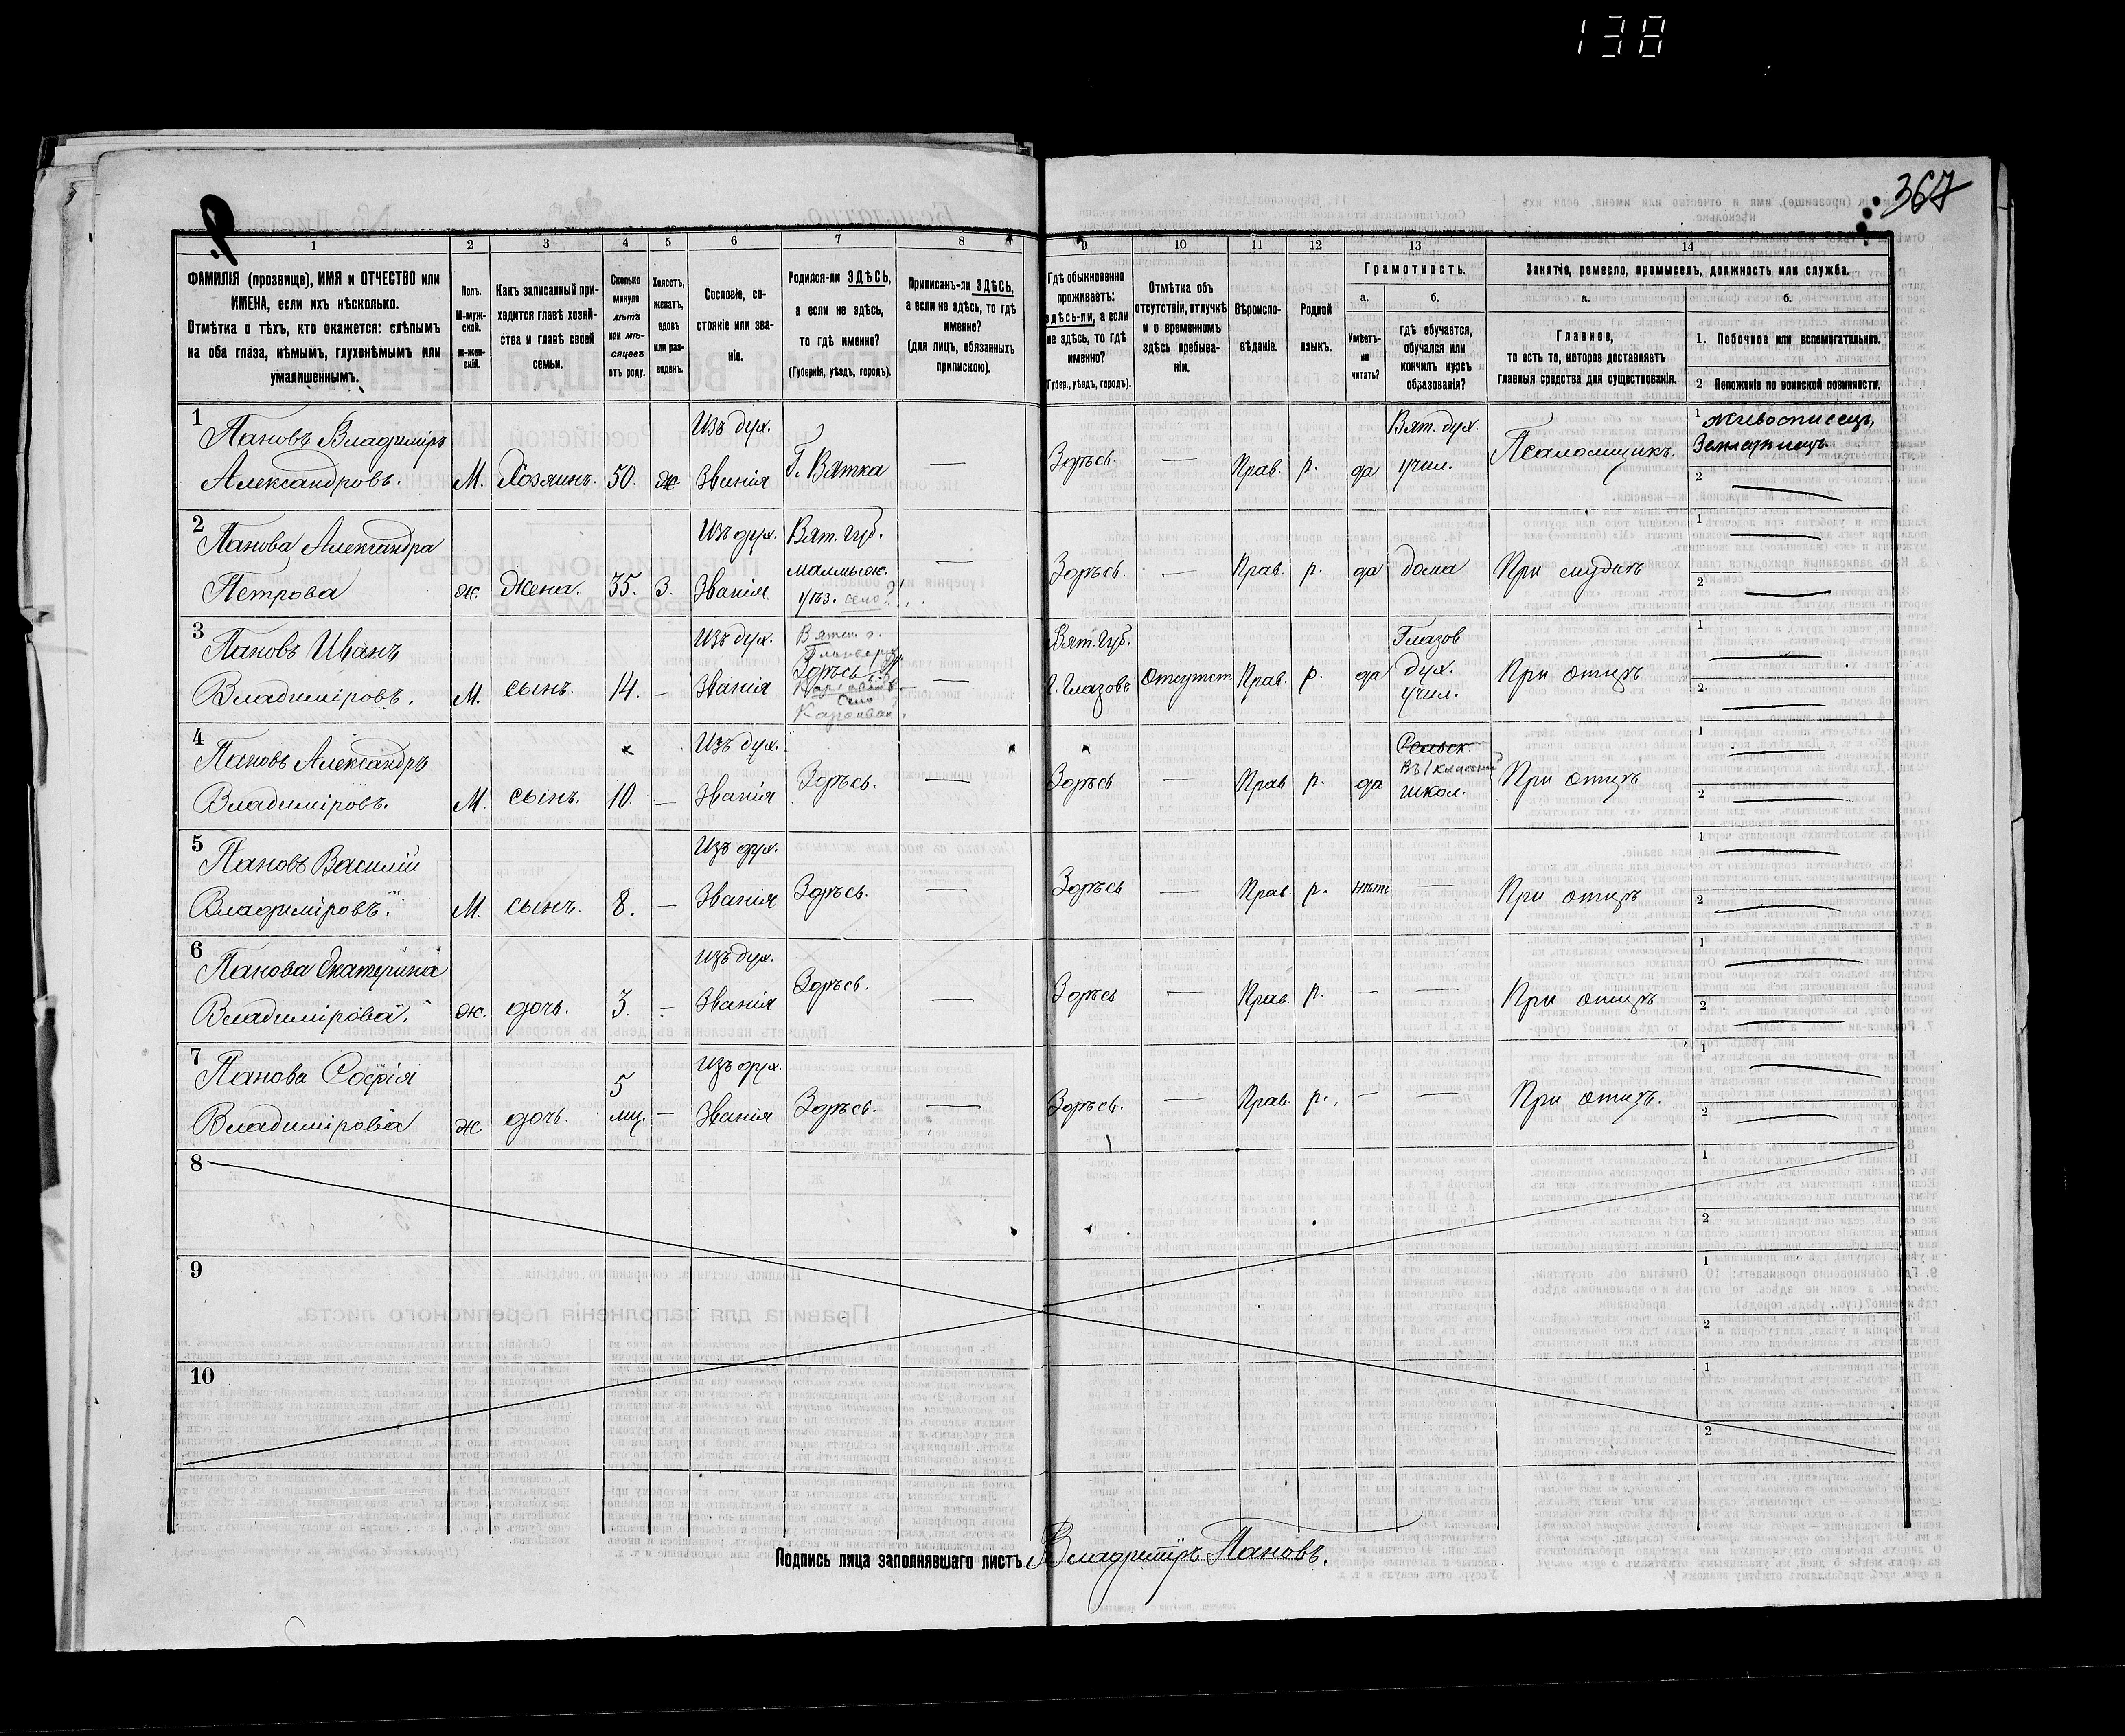 138
367
1 2 3 4 5 6 7 8 9 10 11 12 13 14
ФАМИЛІЯ (прозвище), ИМЯ и ОТЧЕСТВО или
ИМЕНА, если ихъ нѣсколько.
Отмѣтка о тѣхъ, кто окажется: слѣпымъ
на оба глаза, нѣмымъ, глухонѣмымъ или
умалишеннымъ.
Полъ.
М-муж-
ской.
ж-жен-
скій.
Какъ записанный при-
ходится главѣ хозяй-
ства и главѣ своей
семьи.
Сколько
минуло
лѣтъ
или мѣ-
сяцевъ
отъ роду.
Холостъ,
женатъ,
вдовъ
или раз-
веденъ.
Сословіе, со-
стояніе или зва-
ніе.
Родился-ли ЗДѢСЬ,
а если не здѣсь,
то гдѣ именно?
(Губернія, уѣздъ, городъ).
Приписанъ-ли ЗДѢСЬ,
а если не здѣсь, то гдѣ
именно?
(для лицъ, обязанныхъ
припискою).
Гдѣ обыкновенно
проживаетъ:
здѣсь-ли, а если
не здѣсь, то гдѣ
именно?
(Губер., уѣздъ, городъ).
Отмѣтка объ
отсутствіи, отлучкѣ
и о временномъ
здѣсь пребыва-
ніи.
Вѣроиспо-
вѣданіе.
Родной
языкъ.
Грамотность.
а.
Умѣетъ-
ли
читать?
б.
гдѣ обучается,
обучался или
кончилъ курсъ
образованія?
Занятіе, ремесло, промыселъ, должность или служба.
а.
Главное,
то есть то, которое доставляетъ
главныя средства для существованія.
б.
1. Побочное или вспомогательное.
2 Положеніе по воинской повинности.
1 Пановъ Владиміръ
Александровъ. М. Хозяинъ. 50. ж Изъ дух. Званія Г. Вятка — Здѣсь. — Прав. р. да Вят. дух. учил. Псаломщикъ. 1 Живописецъ,
2 —
2 Панова Александра
Петрова ж. Жена. 35. З. Изъ дух. Званія Вят. Губ. Малмыж. уѣз. село — Здѣсь. — Прав. р. да дома При мужѣ 1 — 2 —
3 Пановъ Иванъ
Владиміровъ. М. сынъ. 14. — Изъ дух. Званія Здѣсь — Вят. Губ. г. Глазовъ Отсутст. Прав. р. да Глазов дух. учил. При отцѣ 1 — 2 —
4 Пановъ Александръ
Владиміровъ. М. сынъ. 10. — Изъ дух. Званія Здѣсь. — Здѣсь — Прав р. да Сельск. школ. При отцѣ 1 — 2 —
5 Пановъ Василій
Владиміровъ. М. сынъ. 8. — Изъ дух. Званія Здѣсь. — Здѣсь — Прав. р. нѣтъ — При отцѣ 1 — 2 —
6 Панова Екатерина
Владимірова. ж. дочь. 3. — Изъ дух. Званія Здѣсь. — Здѣсь — Прав. р. — — При отцѣ 1 — 2 —
7 Панова Софія
Владимірова ж дочь. 5 мц. — Изъ дух. Званія Здѣсь. — Здѣсь. — Прав. р. — — При отцѣ. 1 — 2 —
8 1 2
9 1 2
10 1 2
Подпись лица заполнявшаго листъ Владиміръ Пановъ.